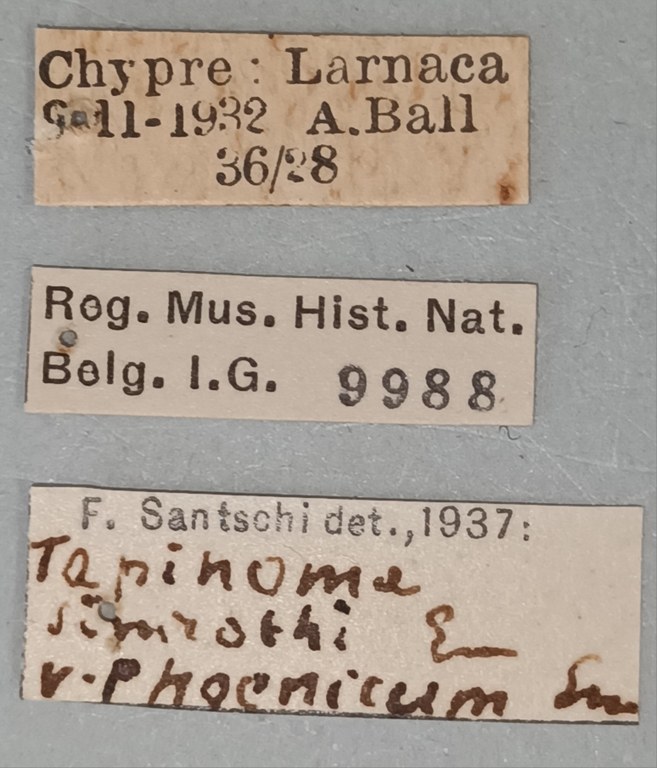 Chypre: Larnaca
11-1932 A.Ball
36/28
Reg. Mus. Hist. Nat.
Belg. I.G. 9988
F. Santschi det., 1937:
Tapinoma
simrothi
v. Phoenicum